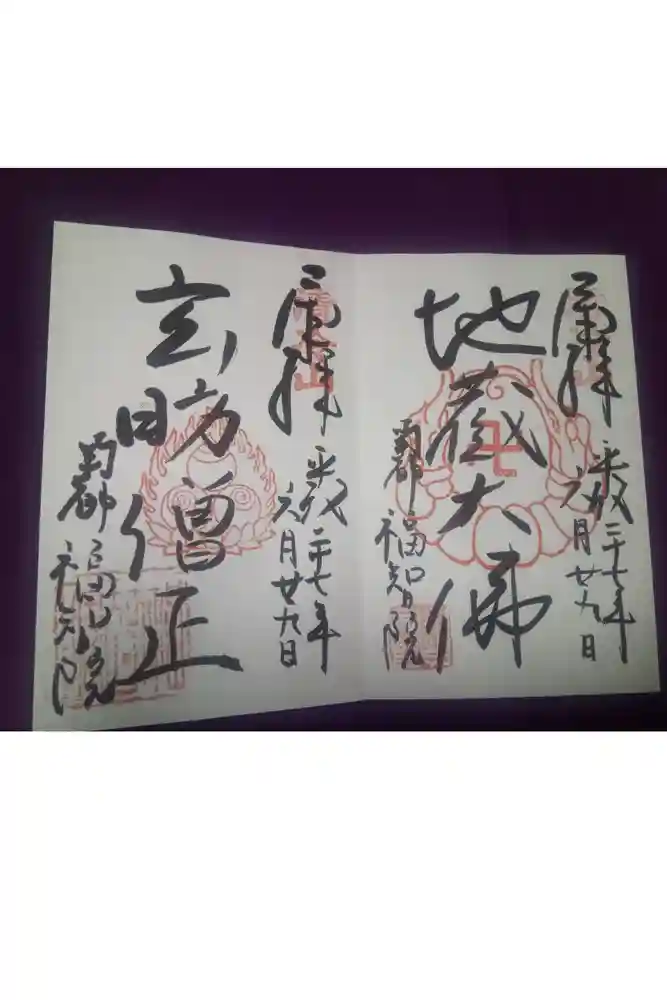 奉拝
平成二十七年
六月廿九日
地蔵大佛
南都 福智院
奉拝
平成二十七年
六月廿九日
玄昉僧正
南都 福智院